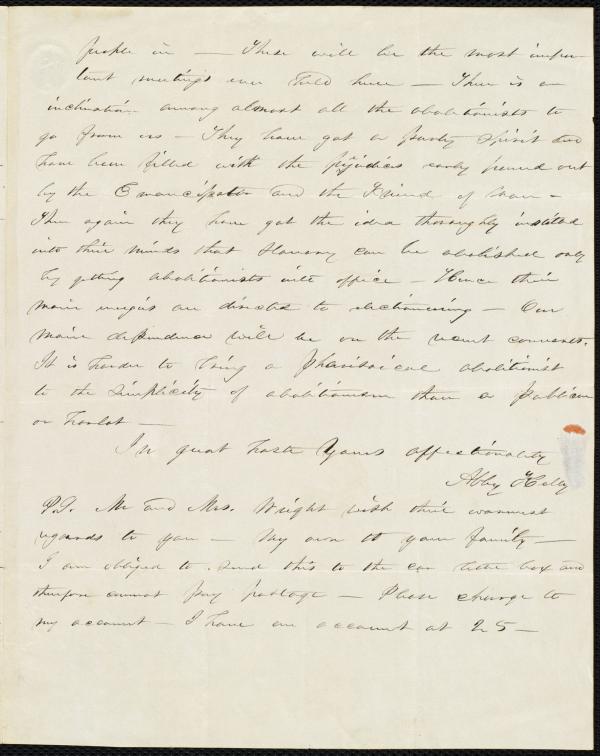 people in — These will be the most impor-
tant meetings ever held here — There is an
inclination among almost all the abolitionists to
go from us — They have got a party spirit and
have been filled with the prejudices early poured out
by the Emancipator and the Friend of Man —
Then again they have got the idea thoroughly instilled
into their minds that slavery can be abolished only
by getting abolitionists into office — Hence their
main energies are directed to electioneering — Our
main dependence will be on the recent converts.
It is harder to bring a Pharisaical abolitionist
to the simplicity of abolitionism than a publican
or harlot —
In great haste Yours affectionately
Abby Kelley
P.S. Mr and Mrs. Wright wish their warmest
regards to you — My own to your family —
I am obliged to send this to the car letter box and
therefore cannot pay postage — Please charge to
my account — I have an account at 25 —